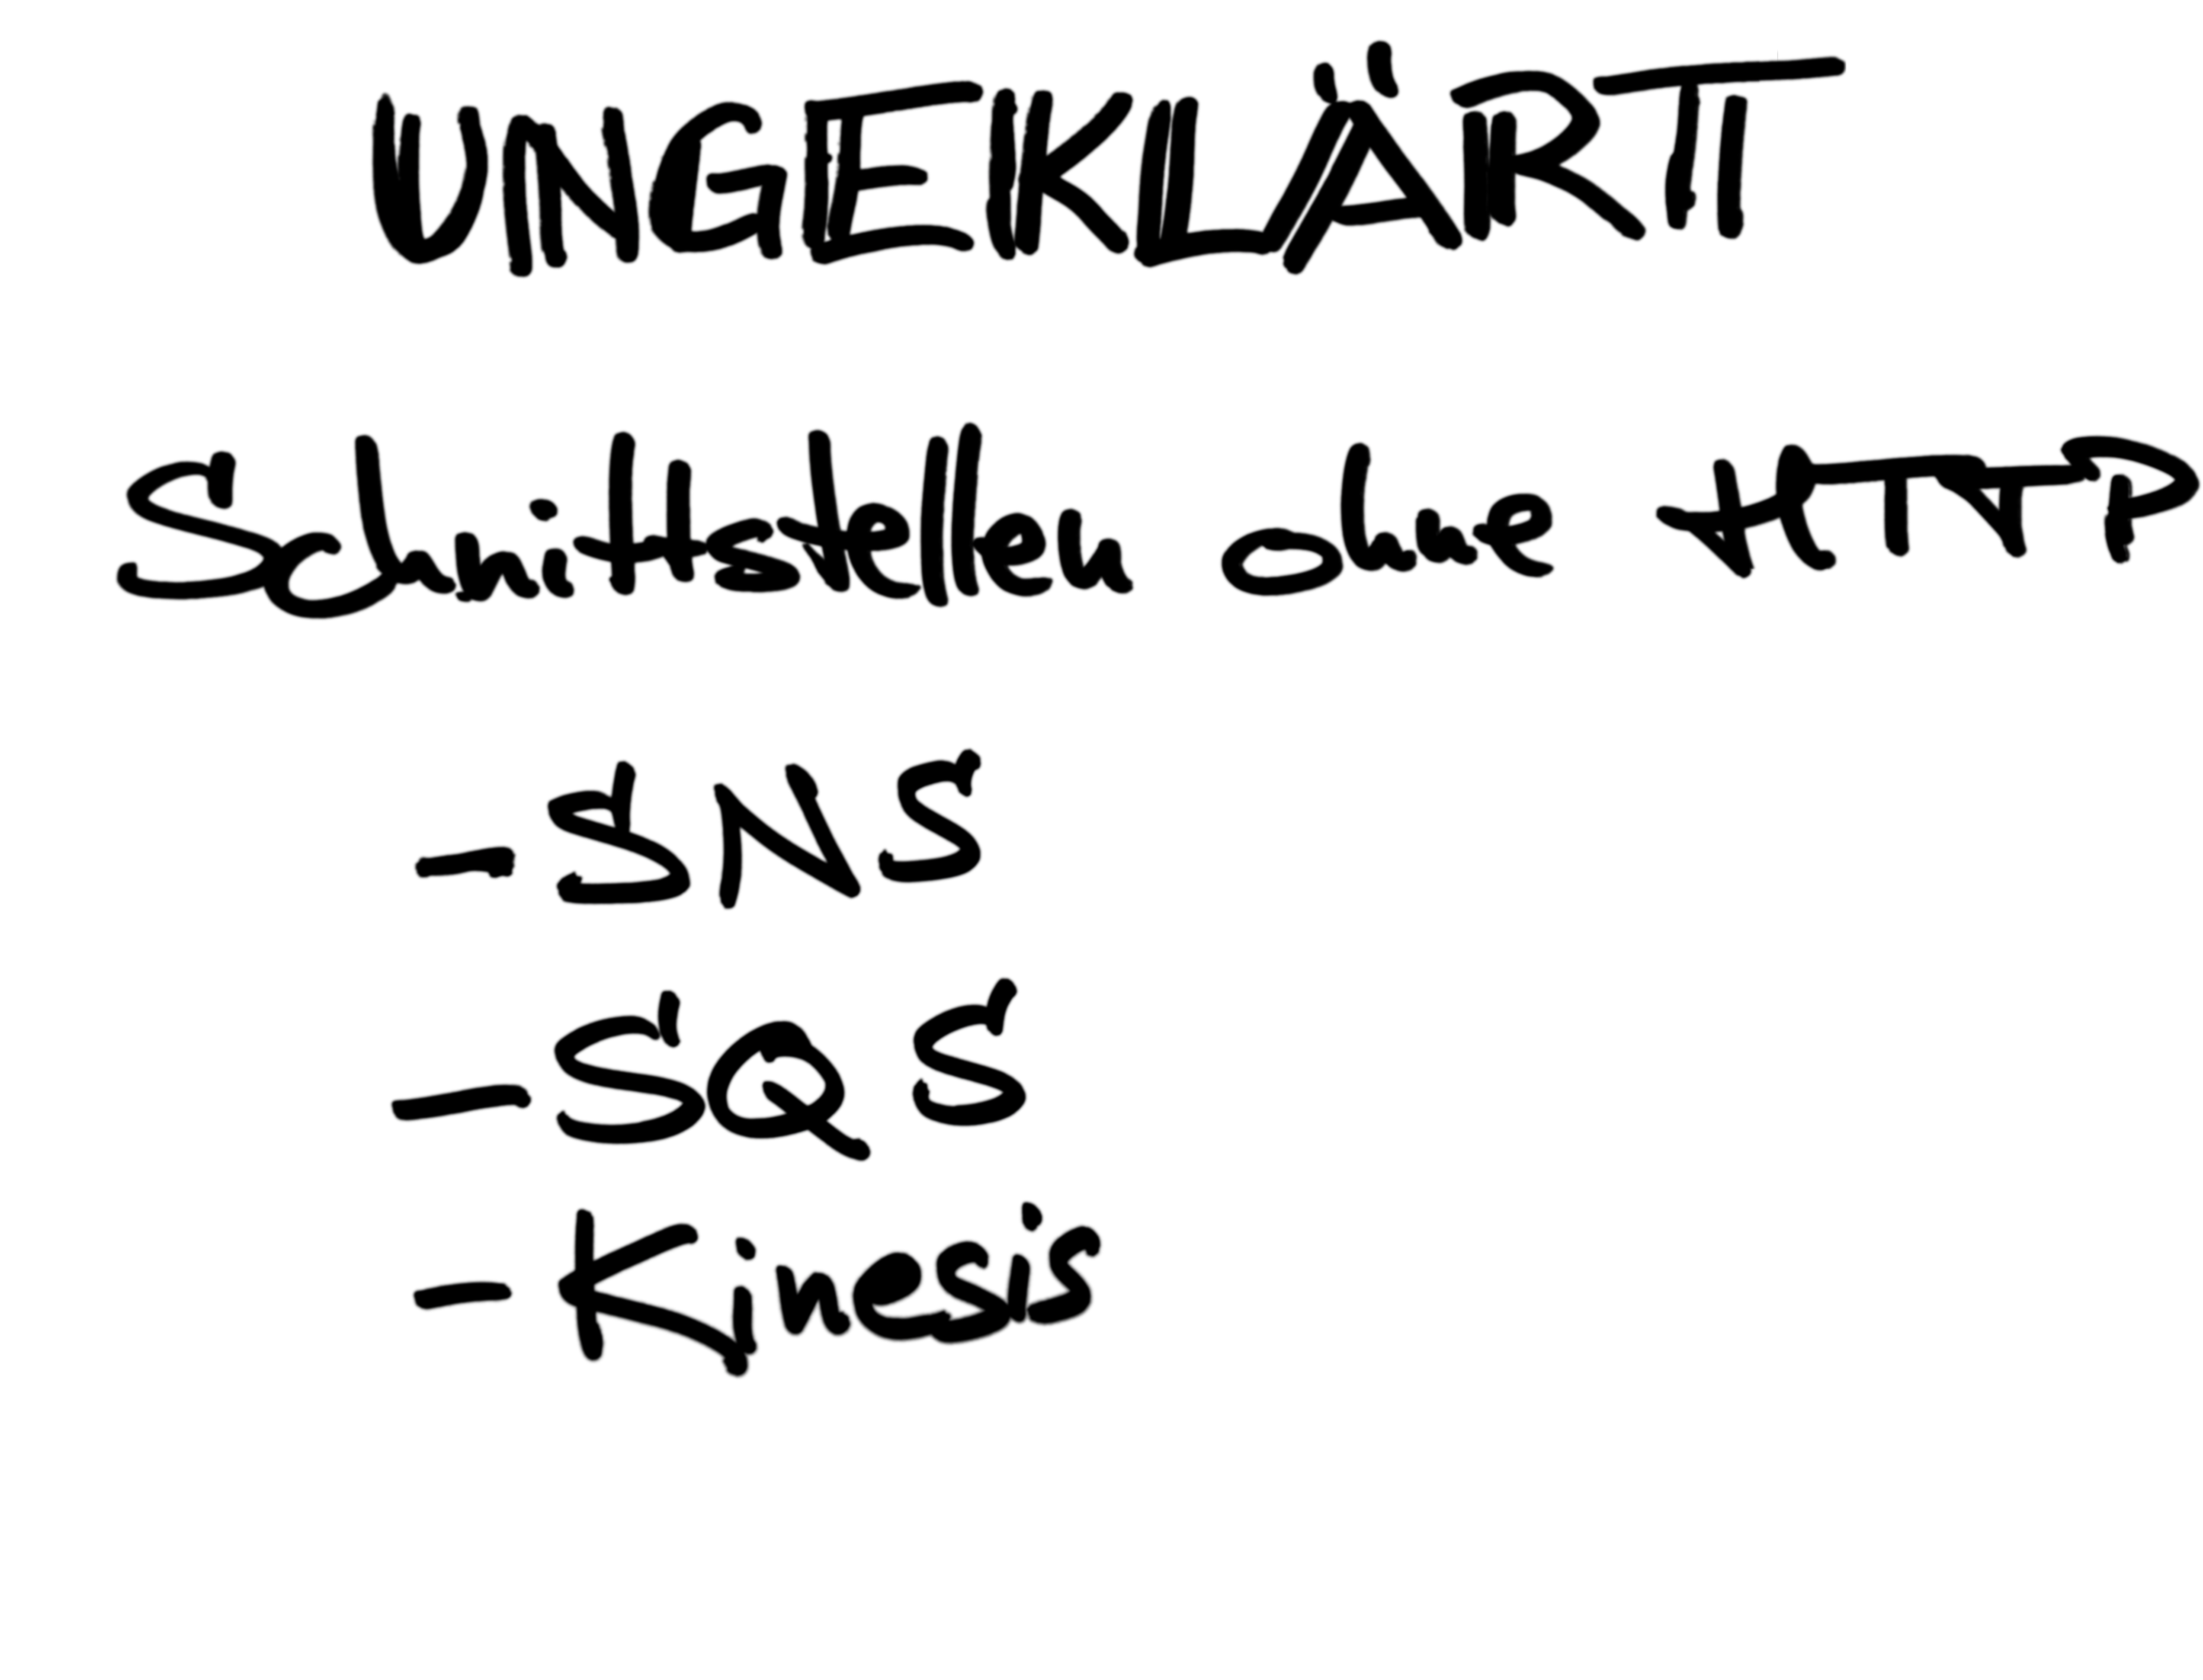 UNGEKLÄRT
Schnittstellen ohne HTTP
- SNS
- SQS
- Kinesis